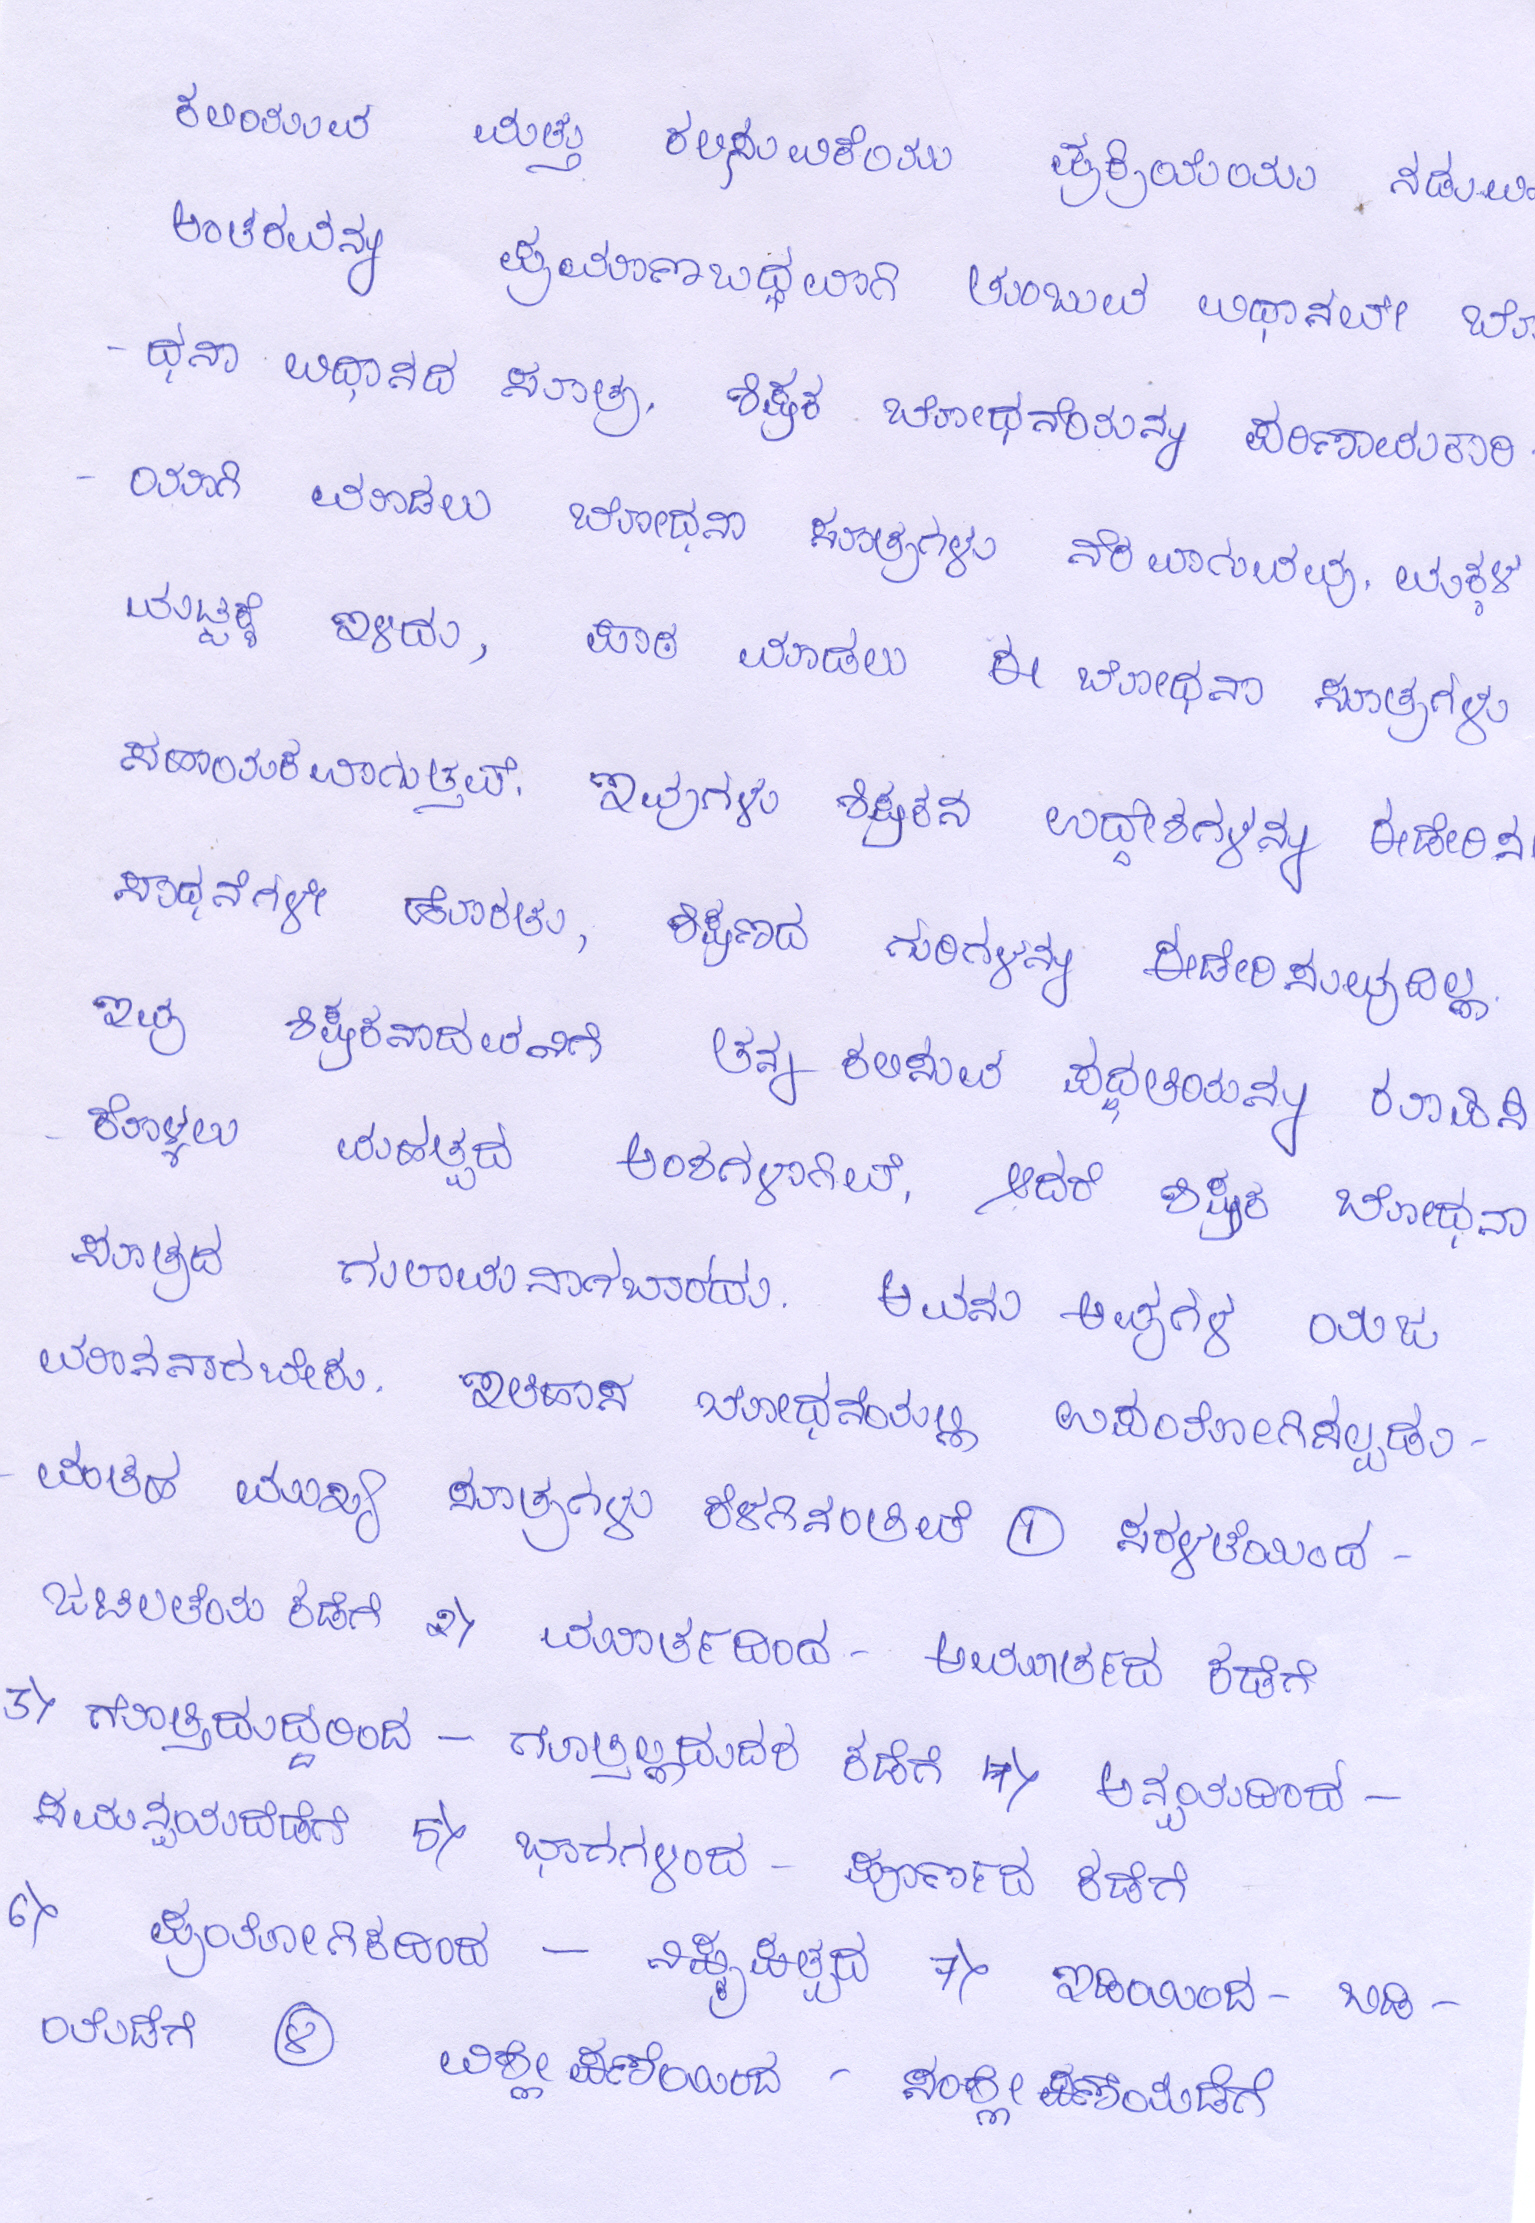 ಕಲಿಯುವ ಮತ್ತು ಕಲಿಸುವಿಕೆಯ ಪ್ರಕ್ರಿಯೆಯ ನಡುವಿ
ಅಂತರವನ್ನು ಪ್ರಮಾಣಬದ್ಧವಾಗಿ ತುಂಬುವ ವಿಧಾನವೇ ಬೋ
- ಧನಾ ವಿಧಾನದ ಸೂತ್ರ. ಶಿಕ್ಷಕ ಬೋಧನೆಯನ್ನು ಪರಿಣಾಮಕಾರಿ -
- ಯಾಗಿ ಮಾಡಲು ಬೋಧನಾ ಸೂತ್ರಗಳು ನೆರವಾಗುವವು. ಮಕ್ಕಳ
ಮಟ್ಟಕ್ಕೆ ಇಳಿದು, ಪಾಠ ಮಾಡಲು ಈ ಬೋಧನಾ ಸೂತ್ರಗಳು
ಸಹಾಯಕವಾಗುತ್ತವೆ. ಇವುಗಳು ಶಿಕ್ಷಕನ ಉದ್ದೇಶಗಳನ್ನು ಈಡೇರಿಸ
ಸಾಧನೆಗಳೇ ಹೊರತು, ಶಿಕ್ಷಣದ ಗುರಿಗಳನ್ನು ಈಡೇರಿಸುವುದಿಲ್ಲ.
ಇವು ಶಿಕ್ಷಕನಾದವನಿಗೆ ತನ್ನ ಕಲಿಸುವ ಪದ್ಧತಿಯನ್ನು ರೂಪಿಸಿ
- ಕೊಳ್ಳಲು ಮಹತ್ವದ ಅಂಶಗಳಾಗಿವೆ, ಆದರೆ ಶಿಕ್ಷಕ ಬೋಧನಾ
ಸೂತ್ರದ ಗುಲಾಮನಾಗಬಾರದು. ಅವನು ಅವುಗಳ ಯಜ
ಮಾನನಾಗಬೇಕು. ಇತಿಹಾಸ ಬೋಧನೆಯಲ್ಲಿ ಉಪಯೋಗಿಸಲ್ಪಡು -
- ವಂತಹ ಮುಖ್ಯ ಸೂತ್ರಗಳು ಕೆಳಗಿನಂತಿವೆ ① ಸರಳತೆಯಿಂದ -
ಜಟಿಲತೆಯ ಕಡೆಗೆ 2) ಮೂರ್ತದಿಂದ - ಅಮೂರ್ತದ ಕಡೆಗೆ
3) ಗೊತ್ತಿದುದ್ದರಿಂದ - ಗೊತ್ತಿಲ್ಲದುದರ ಕಡೆಗೆ 4) ಅನ್ವಯದಿಂದ -
ಸಮನ್ವಯದೆಡೆಗೆ 5) ಭಾಗಗಳಿಂದ - ಪೂರ್ಣದ ಕಡೆಗೆ
6) ಪ್ರಯೋಗಿಕದಿಂದ - 7) ಇಡಿಯಿಂದ - ಬಿಡಿ -
ಯೆಡೆಗೆ ⑧ ವಿಶ್ಲೇಷಣೆಯಿಂದ - ಸಂಶ್ಲೇಷಣೆಯೆಡೆಗೆ